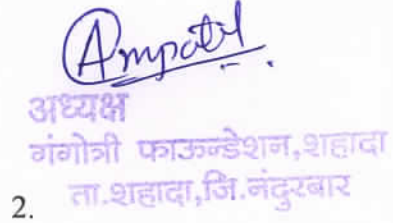 Ampatil
अध्यक्ष
गंगोत्री फाऊन्डेशन,शहादा
2. ता.शहादा,जि.नंदुरबार